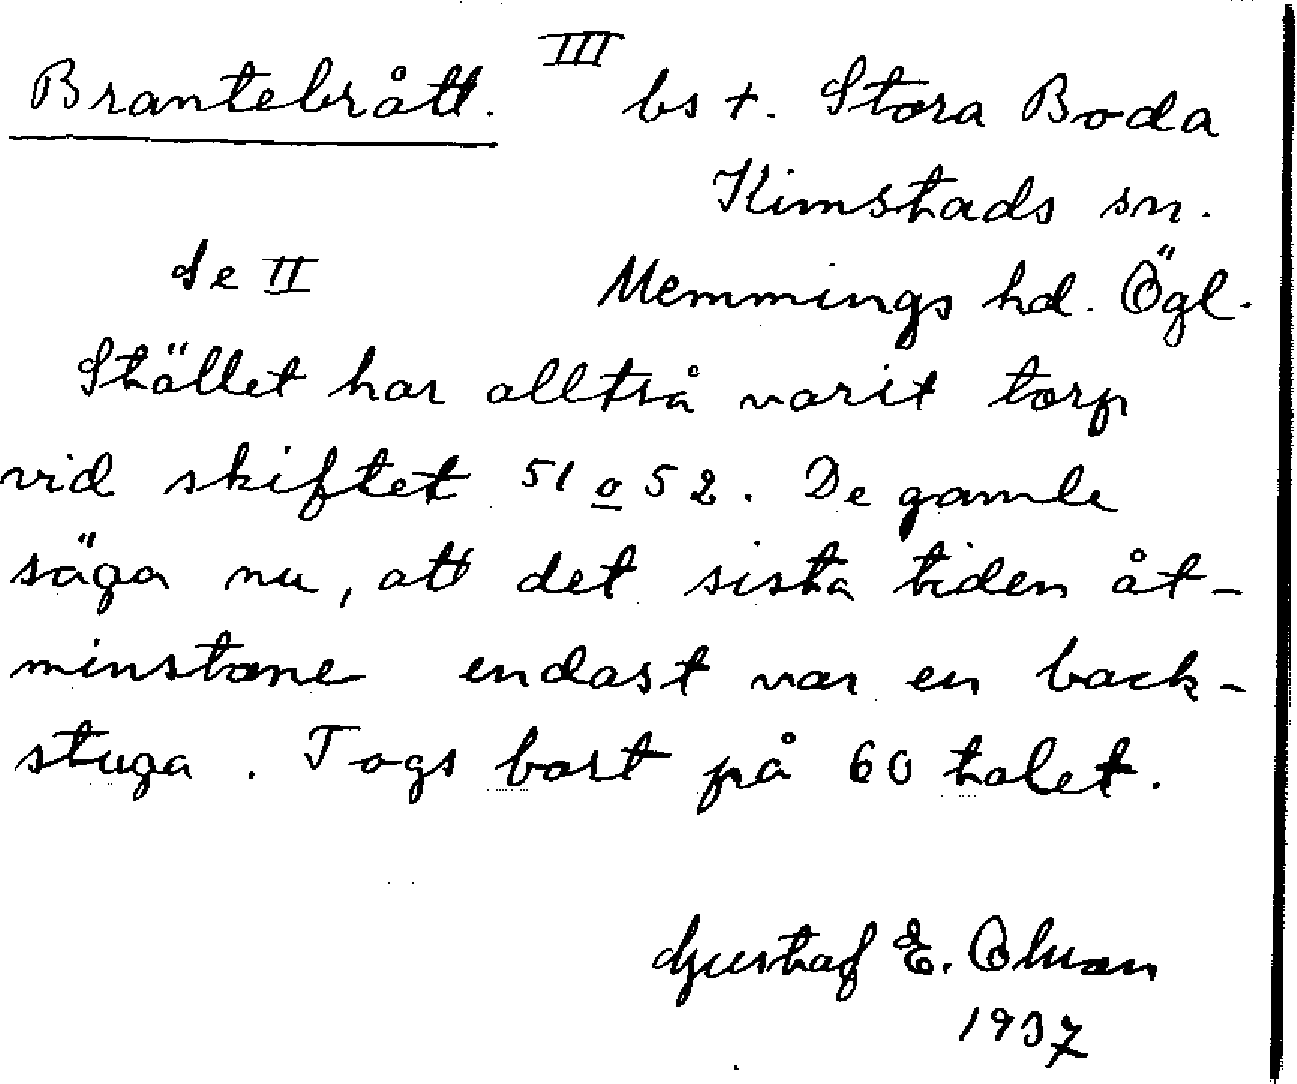 Brantebrått. III bs t. Stora Boda
Kimstads sn.
Se II Memmings hd. Ögl.
Stället har alltså varit torp
vid skiftet 51 o 52. De gamle
säga nu, att det sista tiden åt-
minstone endast var en back-
stuga. Togs bort på 60 talet.
Gustaf E. Olsson
1937